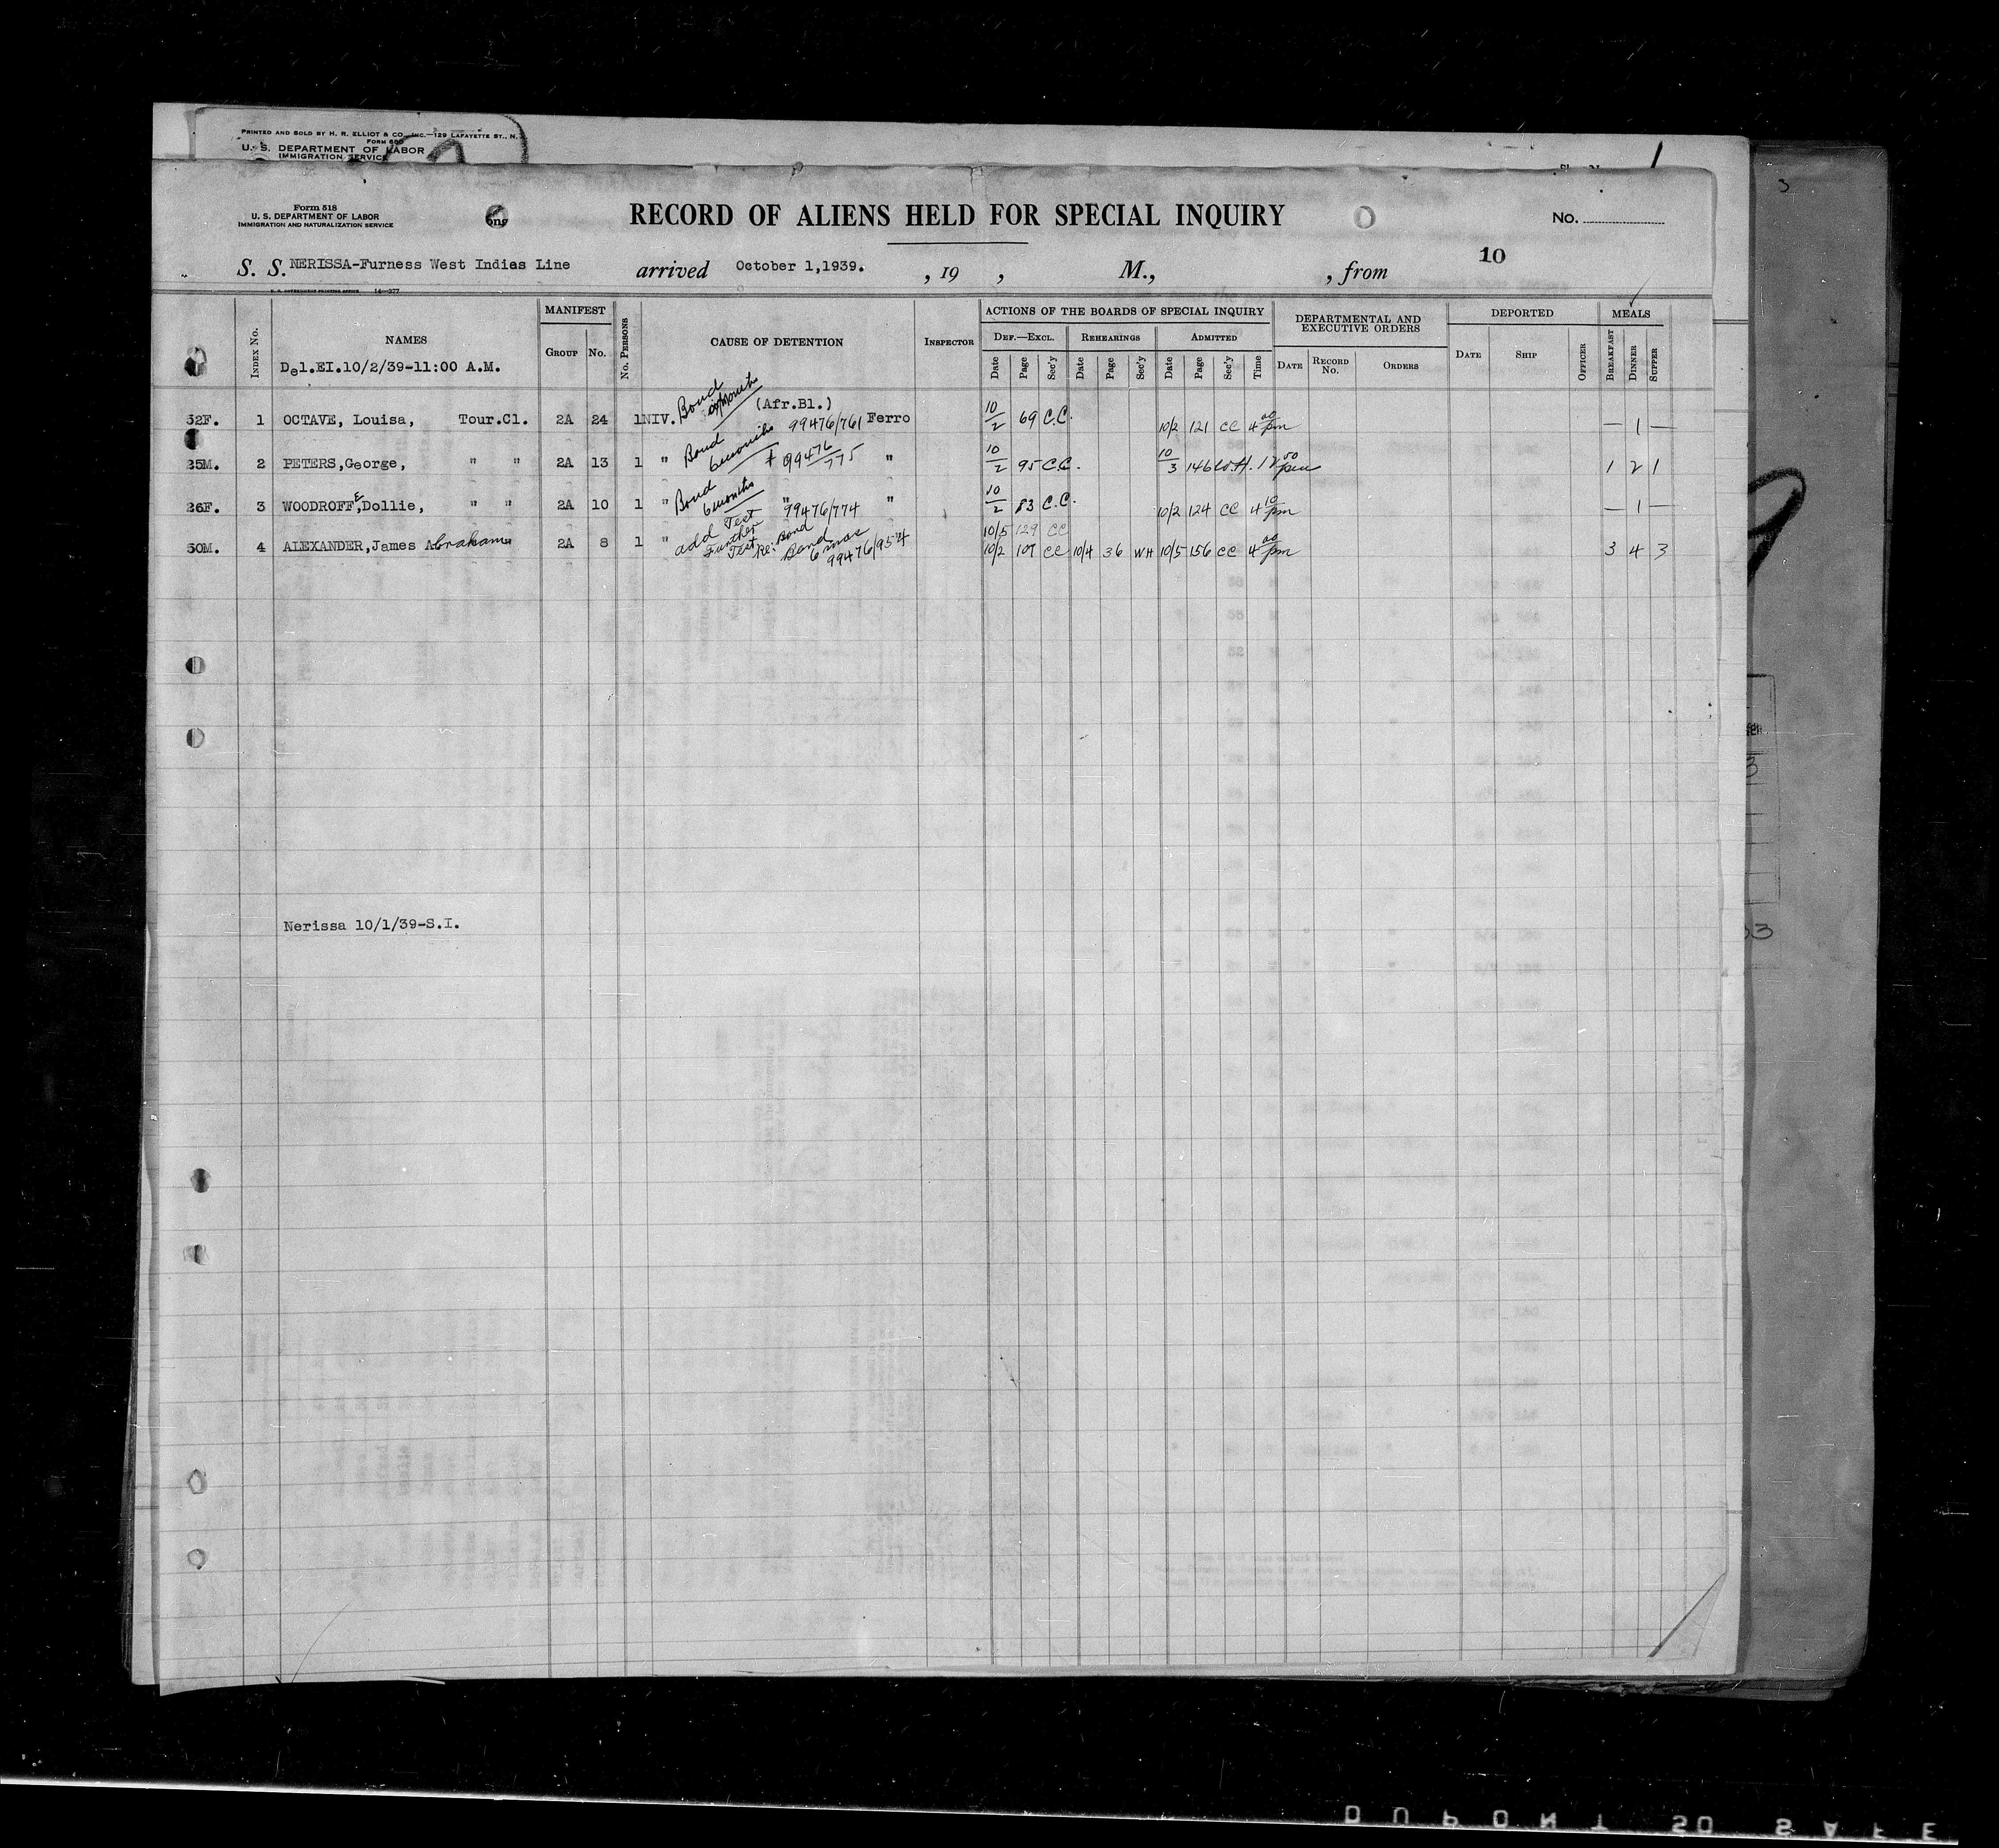 PRINTED AND SOLD BY H. R. ELLIOT & CO., INC.—129 LAFAYETTE ST., N.
FORM 680
U. S. DEPARTMENT OF LABOR
IMMIGRATION SERVICE
1
Form 518
U. S. DEPARTMENT OF LABOR
IMMIGRATION AND NATURALIZATION SERVICE
RECORD OF ALIENS HELD FOR SPECIAL INQUIRY
No.
10
S. S. NERISSA-Furness West Indias Line arrived October 1,1939. , 19 , M., , from
U. S. GOVERNMENT PRINTING OFFICE 14—277
INDEX NO. NAMES MANIFEST GROUP NO. NO. PERSONS CAUSE OF DETENTION INSPECTOR ACTIONS OF THE BOARDS OF SPECIAL INQUIRY DEPARTMENTAL AND EXECUTIVE ORDERS DEPORTED MEALS
DEF.—EXCL. REHEARINGS ADMITTED
Date Page Sec'y Date Page Sec'y Date Page Sec'y Time DATE RECORD No. ORDERS DATE SHIP OFFICER BREAKFAST DINNER SUPPER
Del.EI.10/2/39-11:00 A.M.
52F. 1 OCTAVE, Louisa, Tour.Cl. 2A 24 1 NIV. Bond 6 months (Afr.Bl.) 99476/761 Ferro 10/2 69 C.C. 10/2 121 CC 4 00 pm — 1 —
25M. 2 PETERS,George, " " 2A 13 1 " Bond 6 months " 99476/775 " 10/2 95 C.C. 10/3 146 W.H. 12 50 pm 1 2 1
26F. 3 WOODROFFE,Dollie, " " 2A 10 1 " Bond 6 months " 99476/774 " 10/2 83 C.C. 10/2 124 CC 4 10 pm — 1 —
10/5 129 CC
50M. 4 ALEXANDER,James Abraham " 2A 8 1 " add Test Further Test Re: Bond Bond 6 mos 99476/954 10/2 107 CC 10/4 36 WH 10/5 156 CC 4 00 pm 3 4 3
Nerissa 10/1/39-S.I.
DUPONT SO SAFE